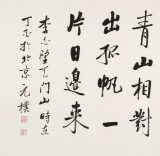 青山相對
出孤帆一
片日邊來
李白望天門山時在
丁亥於北京元樸